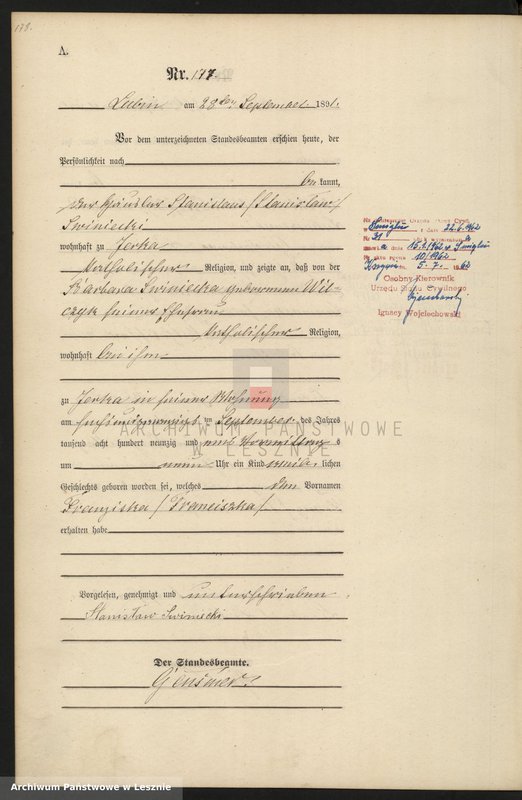 178.
A.
Nr. 177.
Lubin am 28ten September 1891.
Vor dem unterzeichneten Standesbeamten erschien heute, der
Persönlichkeit nach
be kannt,
der Häusler Stanislaus /Stanisław/
Świniecki
wohnhaft zu Jerka
katholischer Religion, und zeigte an, daß von der
Barbara Świniecka geborenen Wil-
czyk seiner Ehefrau
katholischer Religion,
wohnhaft bei ihm
zu Jerka in seiner Wohnung
am fünfundzwanzigsten September des Jahres
tausend acht hundert neunzig und eins Vormittags
um neun Uhr ein Kind weib lichen
Geschlechts geboren worden sei, welches den Vornamen
Franziska /Franciszka/
erhalten habe
Vorgelesen, genehmigt und unterschrieben
Stanisław Swiniecki
Der Standesbeamte.
22.6.1962
31
10/1962
5.7.
Osobny Kierownik
Urzędu Stanu Cywilnego
Ignacy Wojciechowski
ARCHIWUM PAŃSTWOWE
W LESZNIE
Archiwum Państwowe w Lesznie